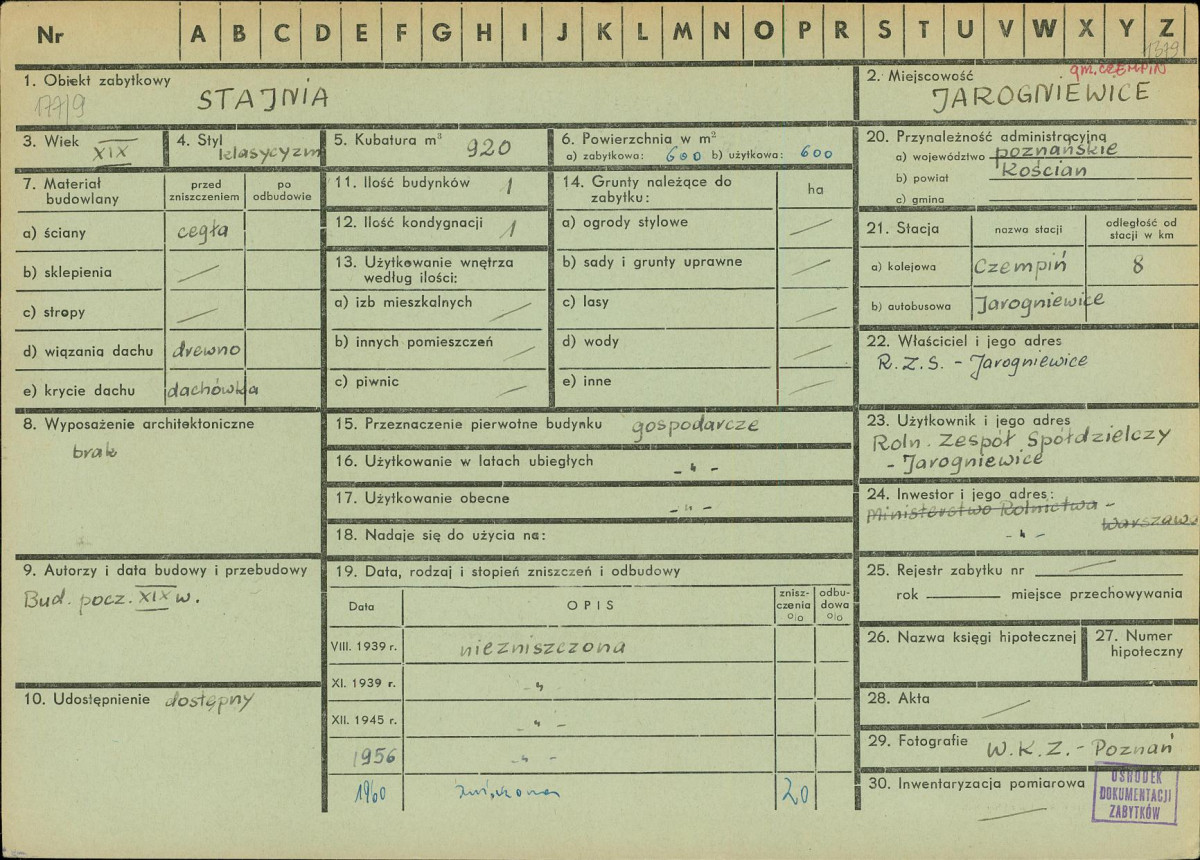 Nr A B C D E F G H I J K L M N O P R S T U V W X Y Z
1379
1. Obiekt zabytkowy
177/9
STAJNIA
2. Miejscowość
gm. CZEMPIŃ
JAROGNIEWICE
3. Wiek XIX
4. Styl klasycyzm
5. Kubatura m³ 920
6. Powierzchnia w m²
a) zabytkowa: 600 b) użytkowa: 600
20. Przynależność administracyjna
a) województwo poznańskie
b) powiat Kościan
c) gmina
7. Materiał budowlany
przed zniszczeniem
po odbudowie
a) ściany cegła
b) sklepienia /
c) stropy /
d) wiązania dachu drewno
e) krycie dachu dachówka
11. Ilość budynków 1
12. Ilość kondygnacji 1
13. Użytkowanie wnętrza
według ilości:
a) izb mieszkalnych /
b) innych pomieszczeń /
c) piwnic /
14. Grunty należące do
zabytku:
ha
a) ogrody stylowe /
b) sady i grunty uprawne /
c) lasy /
d) wody /
e) inne /
21. Stacja
nazwa stacji
odległość od
stacji w km
a) kolejowa Czempiń 8
b) autobusowa Jarogniewice
22. Właściciel i jego adres
R.Z.S. - Jarogniewice
8. Wyposażenie architektoniczne
brak
15. Przeznaczenie pierwotne budynku gospodarcze
16. Użytkowanie w latach ubiegłych - " -
17. Użytkowanie obecne - " -
18. Nadaje się do użycia na:
23. Użytkownik i jego adres
Roln. Zespół Spółdzielczy
- Jarogniewice
24. Inwestor i jego adres:
Ministerstwo Rolnictwa -
Warszawa
- " -
9. Autorzy i data budowy i przebudowy
Bud. pocz. XIX w.
10. Udostępnienie dostępny
19. Data, rodzaj i stopień zniszczeń i odbudowy
Data
OPIS
znisz-
czenia
%
odbu-
dowa
%
VIII. 1939 r. niezniszczona
XI. 1939 r. - "
XII. 1945 r. - " -
1956 - " -
1960 20
25. Rejestr zabytku nr /
rok miejsce przechowywania
26. Nazwa księgi hipotecznej
27. Numer
hipoteczny
28. Akta /
29. Fotografie W.K.Z. - Poznań
30. Inwentaryzacja pomiarowa /
OŚRODEK
DOKUMENTACJI
ZABYTKÓW